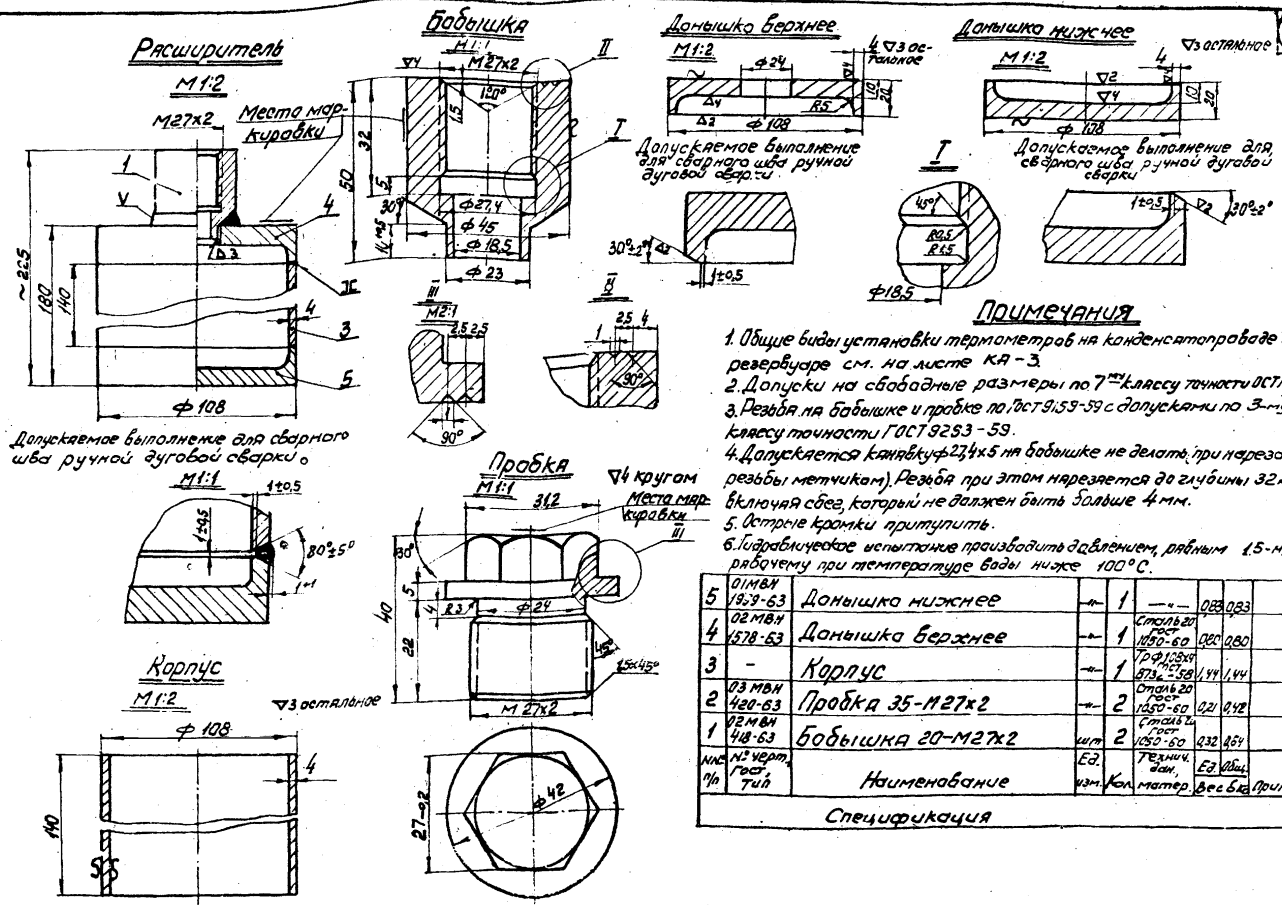 Расширитель
М1:2
М27х2
Места мар-
кировки
1
V
4
▽3
~225
180
140
4
3
5
Ф 108
Допускаемое выполнение для сварного
шва ручной дуговой сварки.
М1:1
1±0,5
1±0,5
80°±5°
Корпус
М1:2
▽3 остальное
Ф 108
4
140
Бобышка
М1:1
М27х2
II
▽4
120°
1,5
I
32
50
5
30°
Ф 27,4
Ф 45
Ф 18,5
Ф 23
III
М2:1
2,5 2,5
90°
II
1 2,5 4
90°
Пробка
М1:1
▽4 кругом
Места мар-
кировки
III
31,2
30°
5
4
R3
Ф 24
40
22
45°
1,5х45°
М 27х2
Ф 42
27-0,2
Донышко верхнее
М1:2
Ф 24
4
▽3 ос-
тальное
▽4
10
20
R5
▽4
▽2
Ф 108
Допускаемое выполнение
для сварного шва ручной
дуговой сварки
30°±2°
▽2
1±0,5
I
45°
R0,5
R1,5
Ф18,5
Донышко нижнее
М1:2
▽3 остальное
4
▽2
▽4
10
20
Допускаемое выполнение для
сварного шва ручной дуговой
сварки
1±0,5
▽2
30°±2°
Примечания
1. Общие виды установки термометров на конденсатопроваде
резервуаре см. на листе КА-3.
2. Допуски на свободные размеры по 7му классу точности ОСТ
3. Резьба на бобышке и пробке по ГОСТ 9159-59 с допусками по 3-му
классу точности ГОСТ 9253-59.
4. Допускается канавку Ф27,4х5 на бобышке не делать, при нарезо
резьбы метчиком). Резьба при этом нарезается до глубины 32
включая сбег, который не должен быть больше 4 мм.
5. Острые кромки притупить.
6. Гидравлическое испытание производить давлением, равным 1.5-м
рабочему при температуре воды ниже 100°С.
5 01МВН 1979-63 Донышко нижнее -"- 1 -"- 0,83 0,83
4 02МВН 1578-63 Донышко верхнее -"- 1 Сталь 20 ГОСТ 1050-60 0,80 0,80
3 - Корпус -"- 1 Тр Ф108х4 1,44 1,44
2 03МВН 420-63 Пробка 35-М27х2 -"- 2 Сталь 20 ГОСТ 1050-60 0,21 0,42
1 02МВН 418-63 Бобышка 20-М27х2 шт 2 Сталь 20 1050-60 0,32 0,64
№№ п/п № черт., Гост, Тип Наименование Ед. изм. Кол. Технич. дан. матер. Ед. Общ. Вес в кг Прим
Спецификация